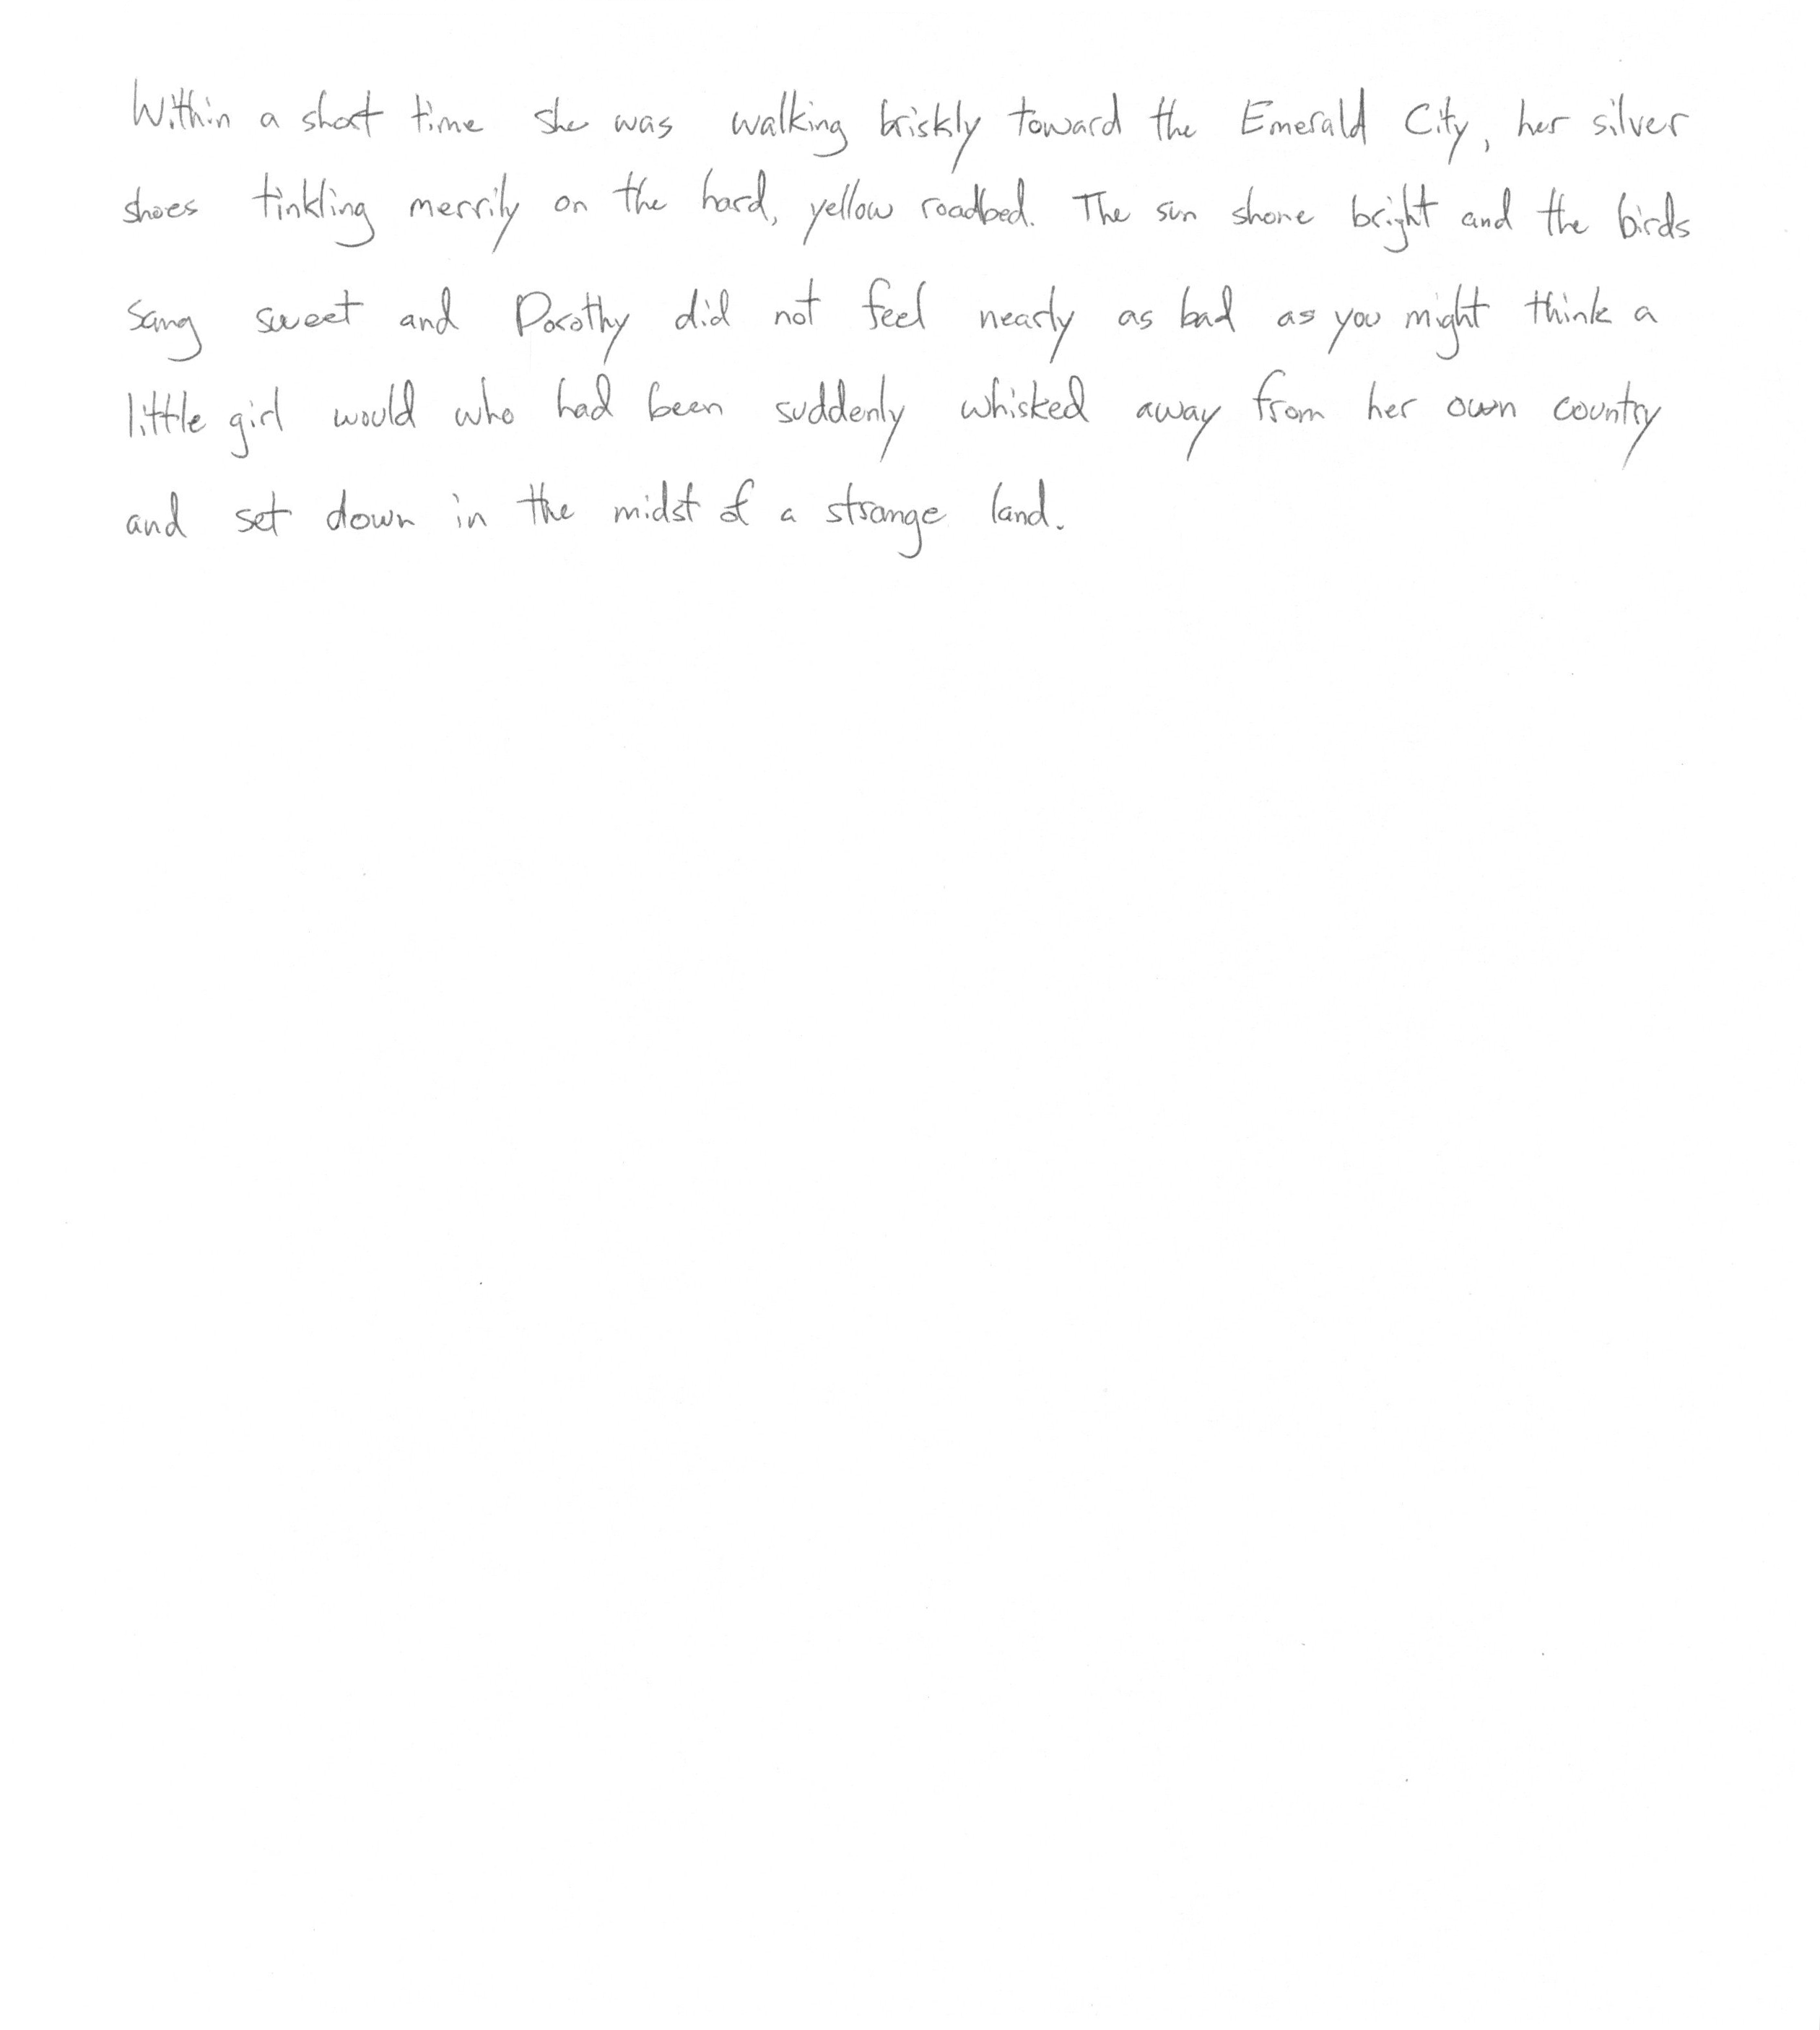 Within a short time she was walking briskly toward the Emerald City, her silver
shoes tinkling merrily on the hard, yellow roadbed. The sun shone bright and the birds
sang sweet and Dorothy did not feel nearly as bad as you might think a
little girl would who had been suddenly whisked away from her own country
and set down in the midst of a strange land.